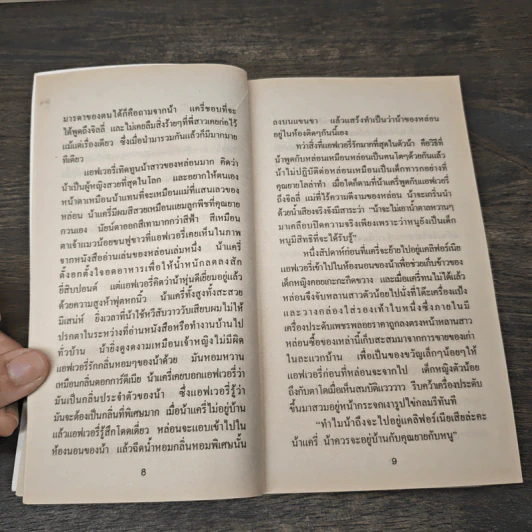 มารดาของตนได้ก็คือถามจากน้า แครี่ชอบที่จะ
ได้พูดถึงจิลลี่ และไม่เคยลืมสิ่งร้ายๆที่พี่สาวเคยก่อไว้
แม้แต่เรื่องเดียว ซึ่งเมื่อนำมารวมกันแล้วก็มีมากมาย
ทีเดียว
แอฟเวอรี่เทิดทูนน้าสาวของหล่อนมาก คิดว่า
น้าเป็นผู้หญิงสวยที่สุดในโลก และอยากให้ตนเอง
หน้าตาเหมือนน้าแทนที่จะเหมือนแม่ที่แสนเลวของ
หล่อน น้าแครี่มีผมสีสวยเหมือนแยมลูกพีชที่คุณยาย
กวนเอง นัยน์ตาออกสีเทามากกว่าสีฟ้า สีเหมือน
ตาเจ้าแมวน้อยขนฟูขาวที่แอฟเวอรี่เคยเห็นในภาพ
จากหนังสืออ่านเล่นของหล่อนเล่มหนึ่ง น้าแครี่
ตั้งอกตั้งใจอดอาหารเพื่อให้น้ำหนักลดลงสัก
ยี่สิบปอนด์ แต่แอฟเวอรี่คิดว่าน้าหุ่นดีเยี่ยมอยู่แล้ว
ด้วยความสูงห้าฟุตหกนิ้ว น้าแครี่ทั้งสูงทั้งสะสวย
มีเสน่ห์ ยิ่งเวลาที่น้าใช้หวีสับวาววับเสียบผมไม่ให้
ปรกตาในระหว่างที่อ่านหนังสือหรือทำงานบ้านไป
ทั่วบ้าน น้ายิ่งดูงดงามเหมือนเจ้าหญิงไม่มีผิด
แอฟเวอรี่รักกลิ่นหอมๆของน้าด้วย มันหอมหวาน
เหมือนกลิ่นดอกการ์ดิเนีย น้าแครี่เคยบอกแอฟเวอรี่ว่า
มันเป็นกลิ่นประจำตัวของน้า ซึ่งแอฟเวอรี่รู้ว่า
มันจะต้องเป็นกลิ่นที่พิเศษมาก เมื่อน้าแครี่ไม่อยู่บ้าน
แล้วแอฟเวอรี่รู้สึกโดดเดี่ยว หล่อนจะแอบเข้าไปใน
ห้องนอนของน้า แล้วฉีดน้ำหอมกลิ่นหอมพิเศษนั้น
8
ลงบนแขนขา แล้วแสร้งทำเป็นว่าน้าของหล่อน
อยู่ในห้องติดๆกันนี้เอง
ทว่าสิ่งที่แอฟเวอรี่รักมากที่สุดในตัวน้า คือวิธีที่
น้าพูดกับหล่อนเหมือนหล่อนเป็นคนโตๆด้วยกันแล้ว
น้าไม่ปฏิบัติต่อหล่อนเหมือนเป็นเด็กทารกอย่างที่
คุณยายโลล่าทำ เมื่อใดก็ตามที่น้าแครี่พูดกับแอฟเวอรี่
ถึงจิลลี่ แม่ที่ไร้ความดีงามของหล่อน น้าจะเกริ่นนำ
ด้วยน้ำเสียงจริงจังมีสาระว่า "น้าจะไม่เอาน้ำตาลหวานๆ
มาเคลือบปิดความจริงเพียงเพราะว่าหนูยังเป็นเด็ก
หนูมีสิทธิที่จะได้รับรู้"
หนึ่งสัปดาห์ก่อนที่แครี่จะย้ายไปอยู่แคลิฟอร์เนีย
แอฟเวอรี่เข้าไปในห้องนอนของน้าเพื่อช่วยเก็บข้าวของ
เด็กหญิงคอยเกะกะกีดขวาง และเมื่อแครี่ทนไม่ได้แล้ว
หล่อนจึงจับหลานสาวตัวน้อยไปนั่งที่โต๊ะเครื่องแป้ง
และวางกล่องใส่รองเท้าใบหนึ่งซึ่งภายในมี
เครื่องประดับเพชรพลอยราคาถูกลงตรงหน้าหลานสาว
หล่อนซื้อของเหล่านี้เก็บสะสมมาจากการขายของเก่า
ในละแวกบ้าน เพื่อเป็นของขวัญเล็กๆน้อยๆให้
แอฟเวอรี่ก่อนที่หล่อนจะจากไป เด็กหญิงตัวน้อย
ถึงกับตาโตเมื่อเห็นสมบัติแวววาว รีบคว้าเครื่องประดับ
ขึ้นมาสวมอยู่หน้ากระจกเงารูปไข่กลมรีทันที
"ทำไมน้าถึงจะไปอยู่แคลิฟอร์เนียเสียล่ะคะ
น้าแครี่ น้าควรจะอยู่บ้านกับคุณยายกับหนู"
9